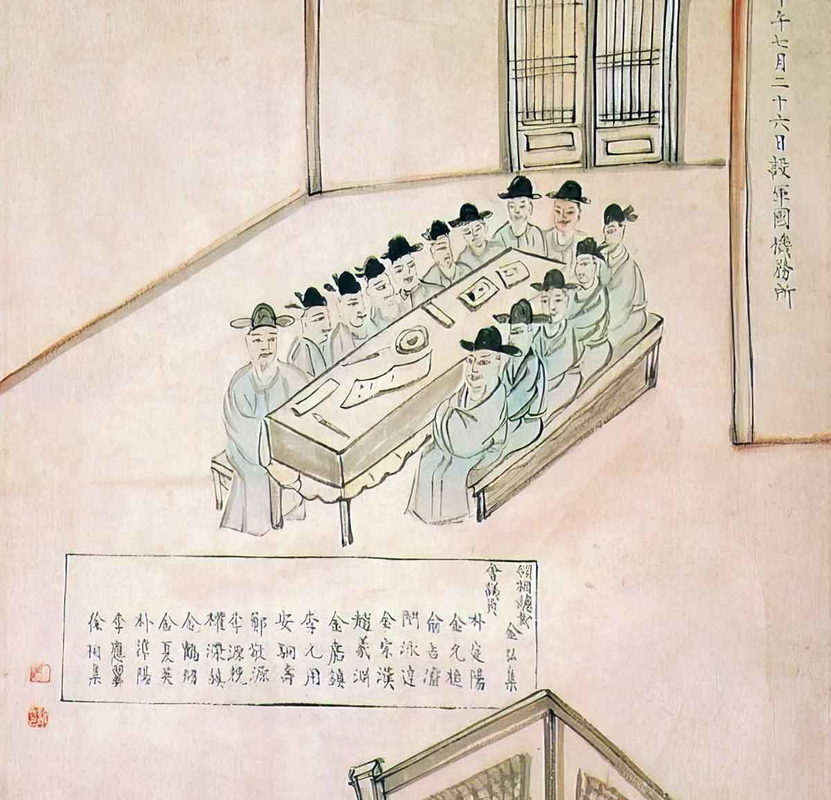 午七月二十六日設軍國機務所
領相總裁 金弘集
會議員 朴定陽
金允植
兪吉濬
閔泳達
金宗漢
趙羲淵
金嘉鎮
李允用
安駉壽
鄭敬源
李源兢
權瀅鎮
金鶴羽
金夏英
朴準陽
李應翼
徐相集